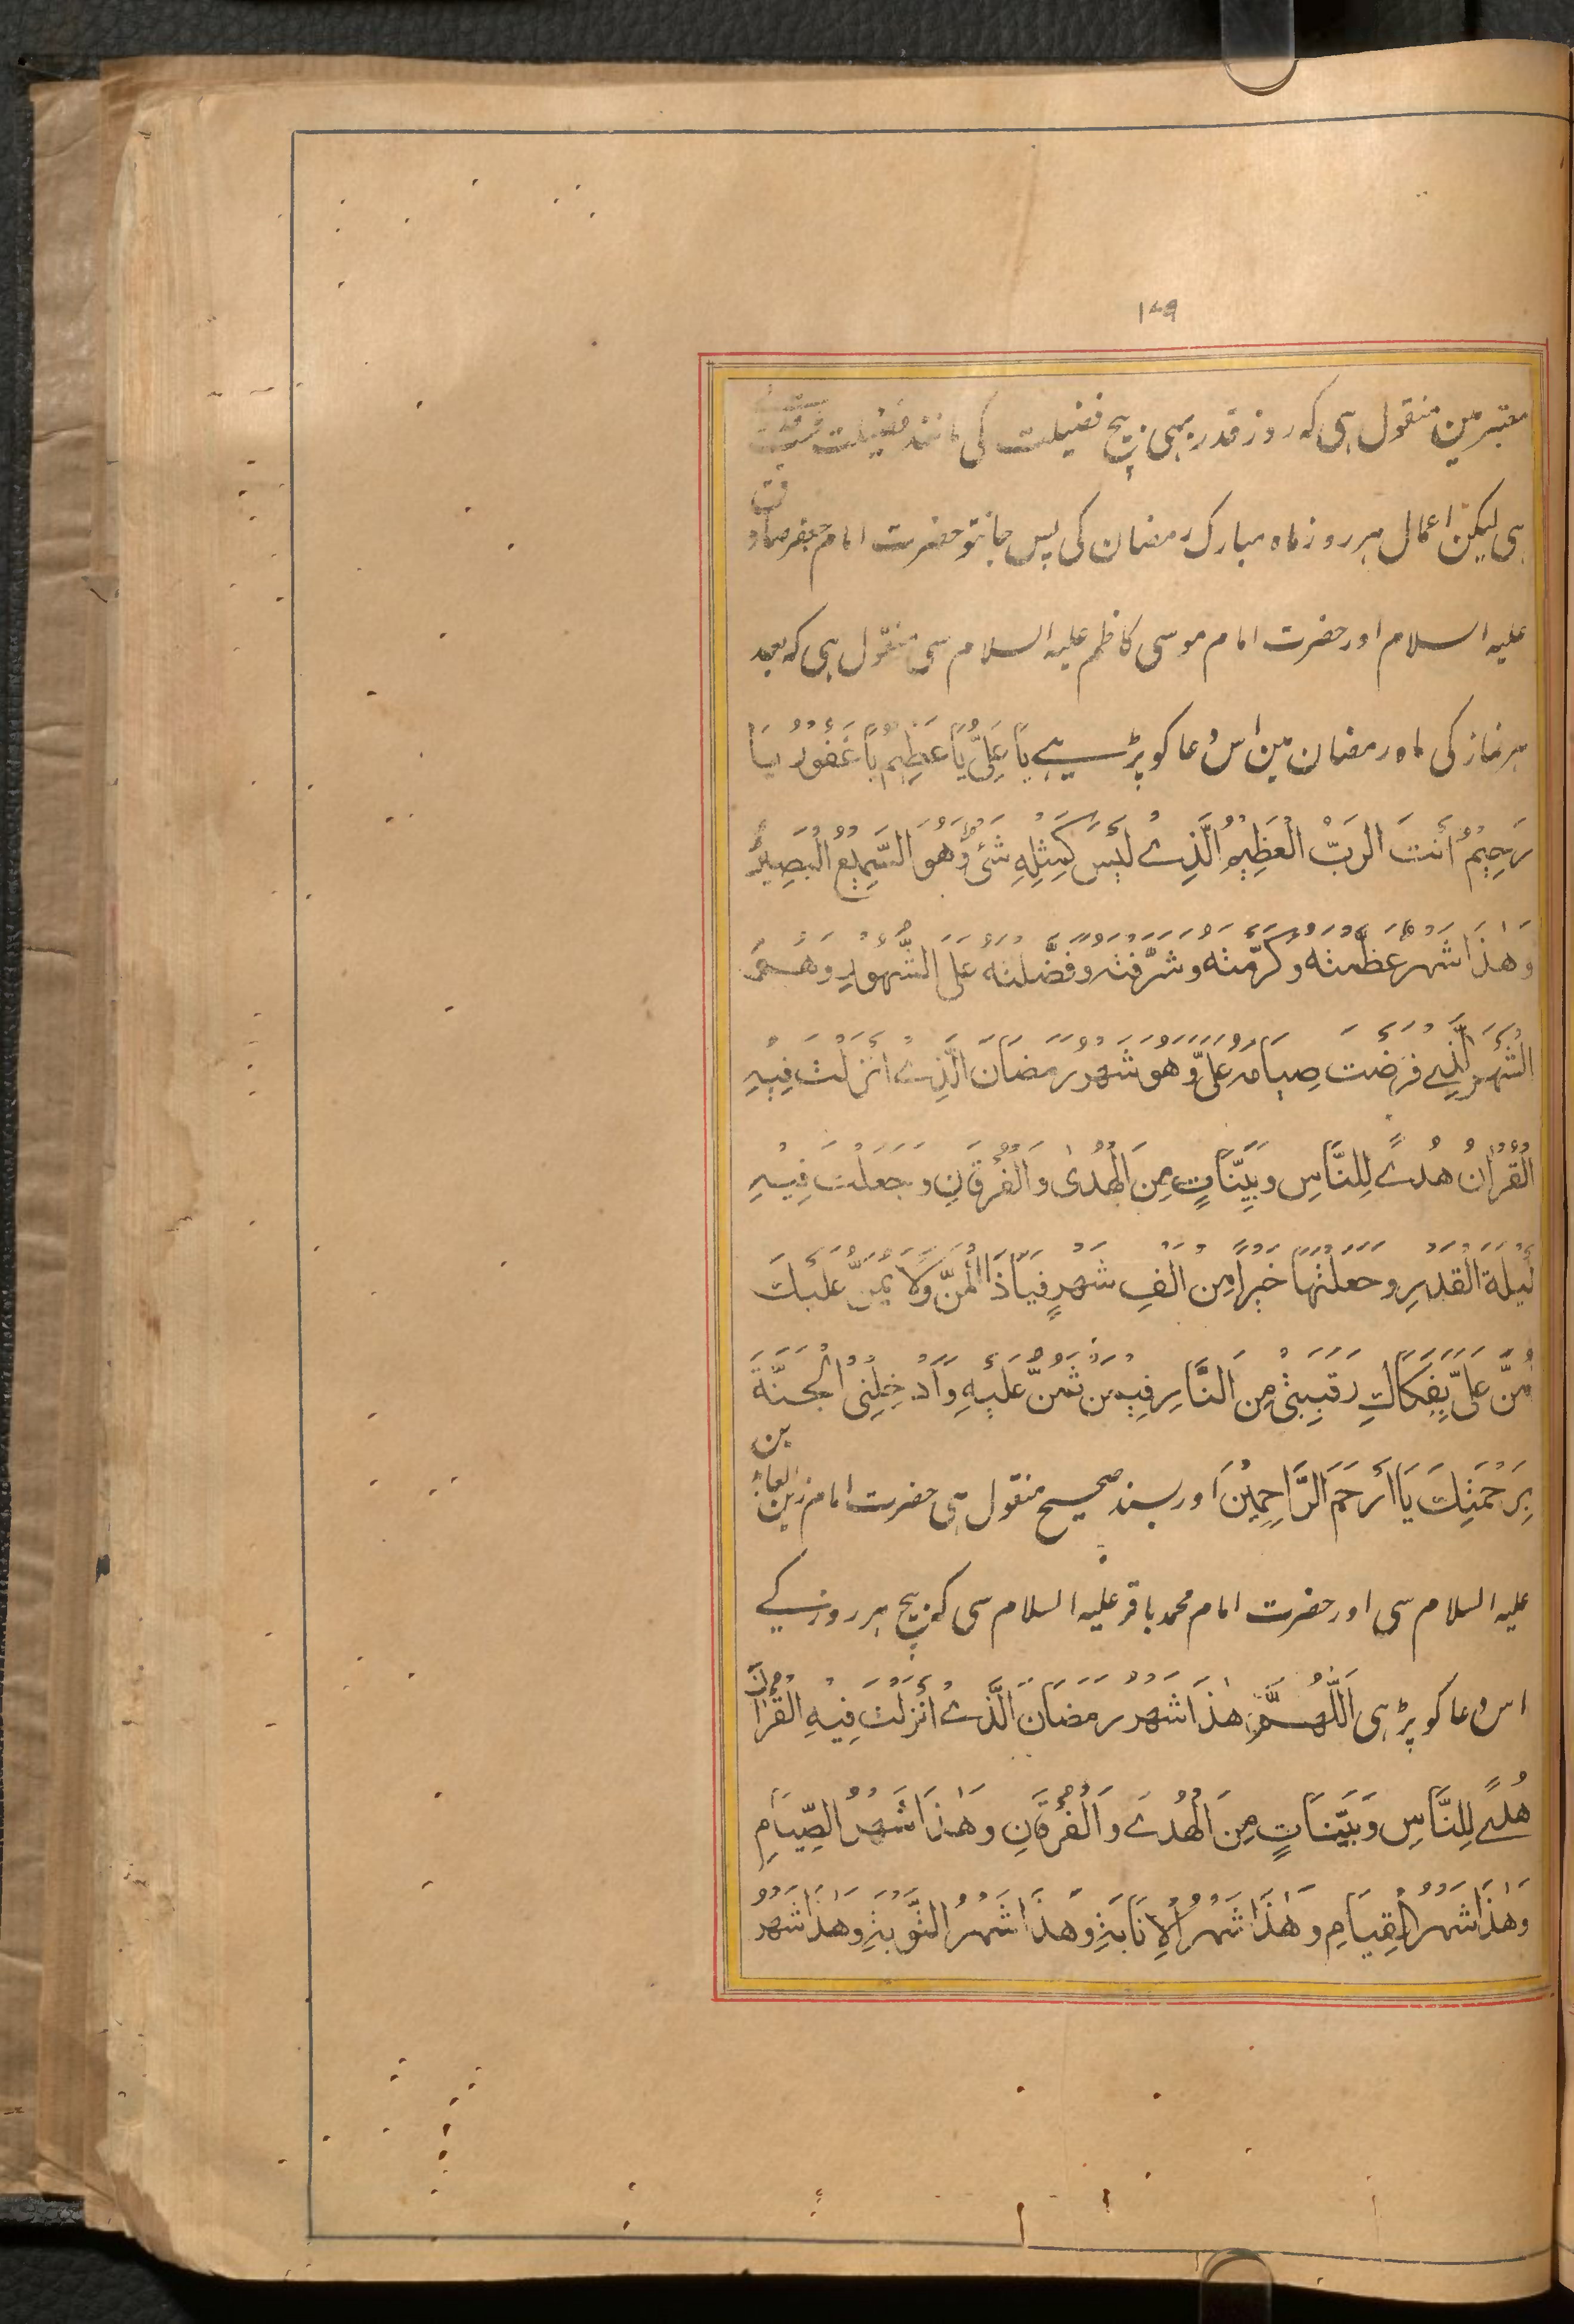 ۱۷۹
معتبر مین منقول ہی کہ روز قدر بہی بیچ فضیلت کی مانند فضیلت شب قدر کے
ہی لیکن اعمال ہر روز ماہ مبارک رمضان کی پس جانتو حضرت امام جعفر صادق
علیہ السلام اور حضرت امام موسی کاظم علیہ السلام سی منقول ہی کہ بعد
ہر نماز کی ماہ رمضان مین اس دعا کو پڑہے یَا عَلِیُّ یَا عَظِیْمُ یَا غَفُوْرُ یَا
رَحِیْمُ اَنْتَ الرَبُّ الْعَظِیْمُ الَّذِیْ لَیْسَ کَمِثْلِهِ شَیْءٌ وَّهُوَ السَّمِیْعُ الْبَصِیْرُ
وَهٰذَا شَهْرٌ عَظَّمْتَهُ وَکَرَّمْتَهُ وَشَرَّفْتَهُ وَفَضَّلْتَهُ عَلَی الشُّهُوْرِ وَهُوَ
الشَّهْرُ الَّذِیْ فَرَضْتَ صِیَامَهُ عَلَیَّ وَهُوَ شَهْرُ رَمَضَانَ الَّذِیْ اَنْزَلْتَ فِیْهِ
الْقُرْاٰنُ هُدًی لِلنَّاسِ وَبَیِّنَاتٍ مِنَ الْهُدٰی وَالْفُرْقَانِ وَجَعَلْتَ فِیْهِ
لَیْلَةَ الْقَدْرِ وَجَعَلْتَهَا خَیْرًا مِنْ اَلْفِ شَهْرٍ فَیَا ذَا الْمَنِّ وَلَا یُمَنُّ عَلَیْكَ
مُنَّ عَلَیَّ بِفَکَاكِ رَقَبَتِیْ مِنَ النَّارِ فِیْمَنْ تَمُنُّ عَلَیْهِ وَاَدْخِلْنِی الْجَنَّةَ
بِرَحْمَتِكَ یَا اَرْحَمَ الرَّاحِمِیْنَ اور بسند صحیح منقول ہی حضرت امام زین العابدین
علیہ السلام سی اور حضرت امام محمد باقر علیہ السلام سی کہ بیچ ہر روز کے
اس دعا کو پڑہی اَللّٰهُمَّ هٰذَا شَهْرُ رَمَضَانَ الَّذِیْ اَنْزَلْتَ فِیْهِ الْقُرْاٰنَ
هُدًی لِلنَّاسِ وَبَیِّنَاتٍ مِنَ الْهُدٰی وَالْفُرْقَانِ وَهٰذَا شَهْرُ الصِّیَامِ
وَهٰذَا شَهْرُ الْقِیَامِ وَهٰذَا شَهْرُ الْاِنَابَةِ وَهٰذَا شَهْرُ التَّوْبَةِ وَهٰذَا شَهْرُ